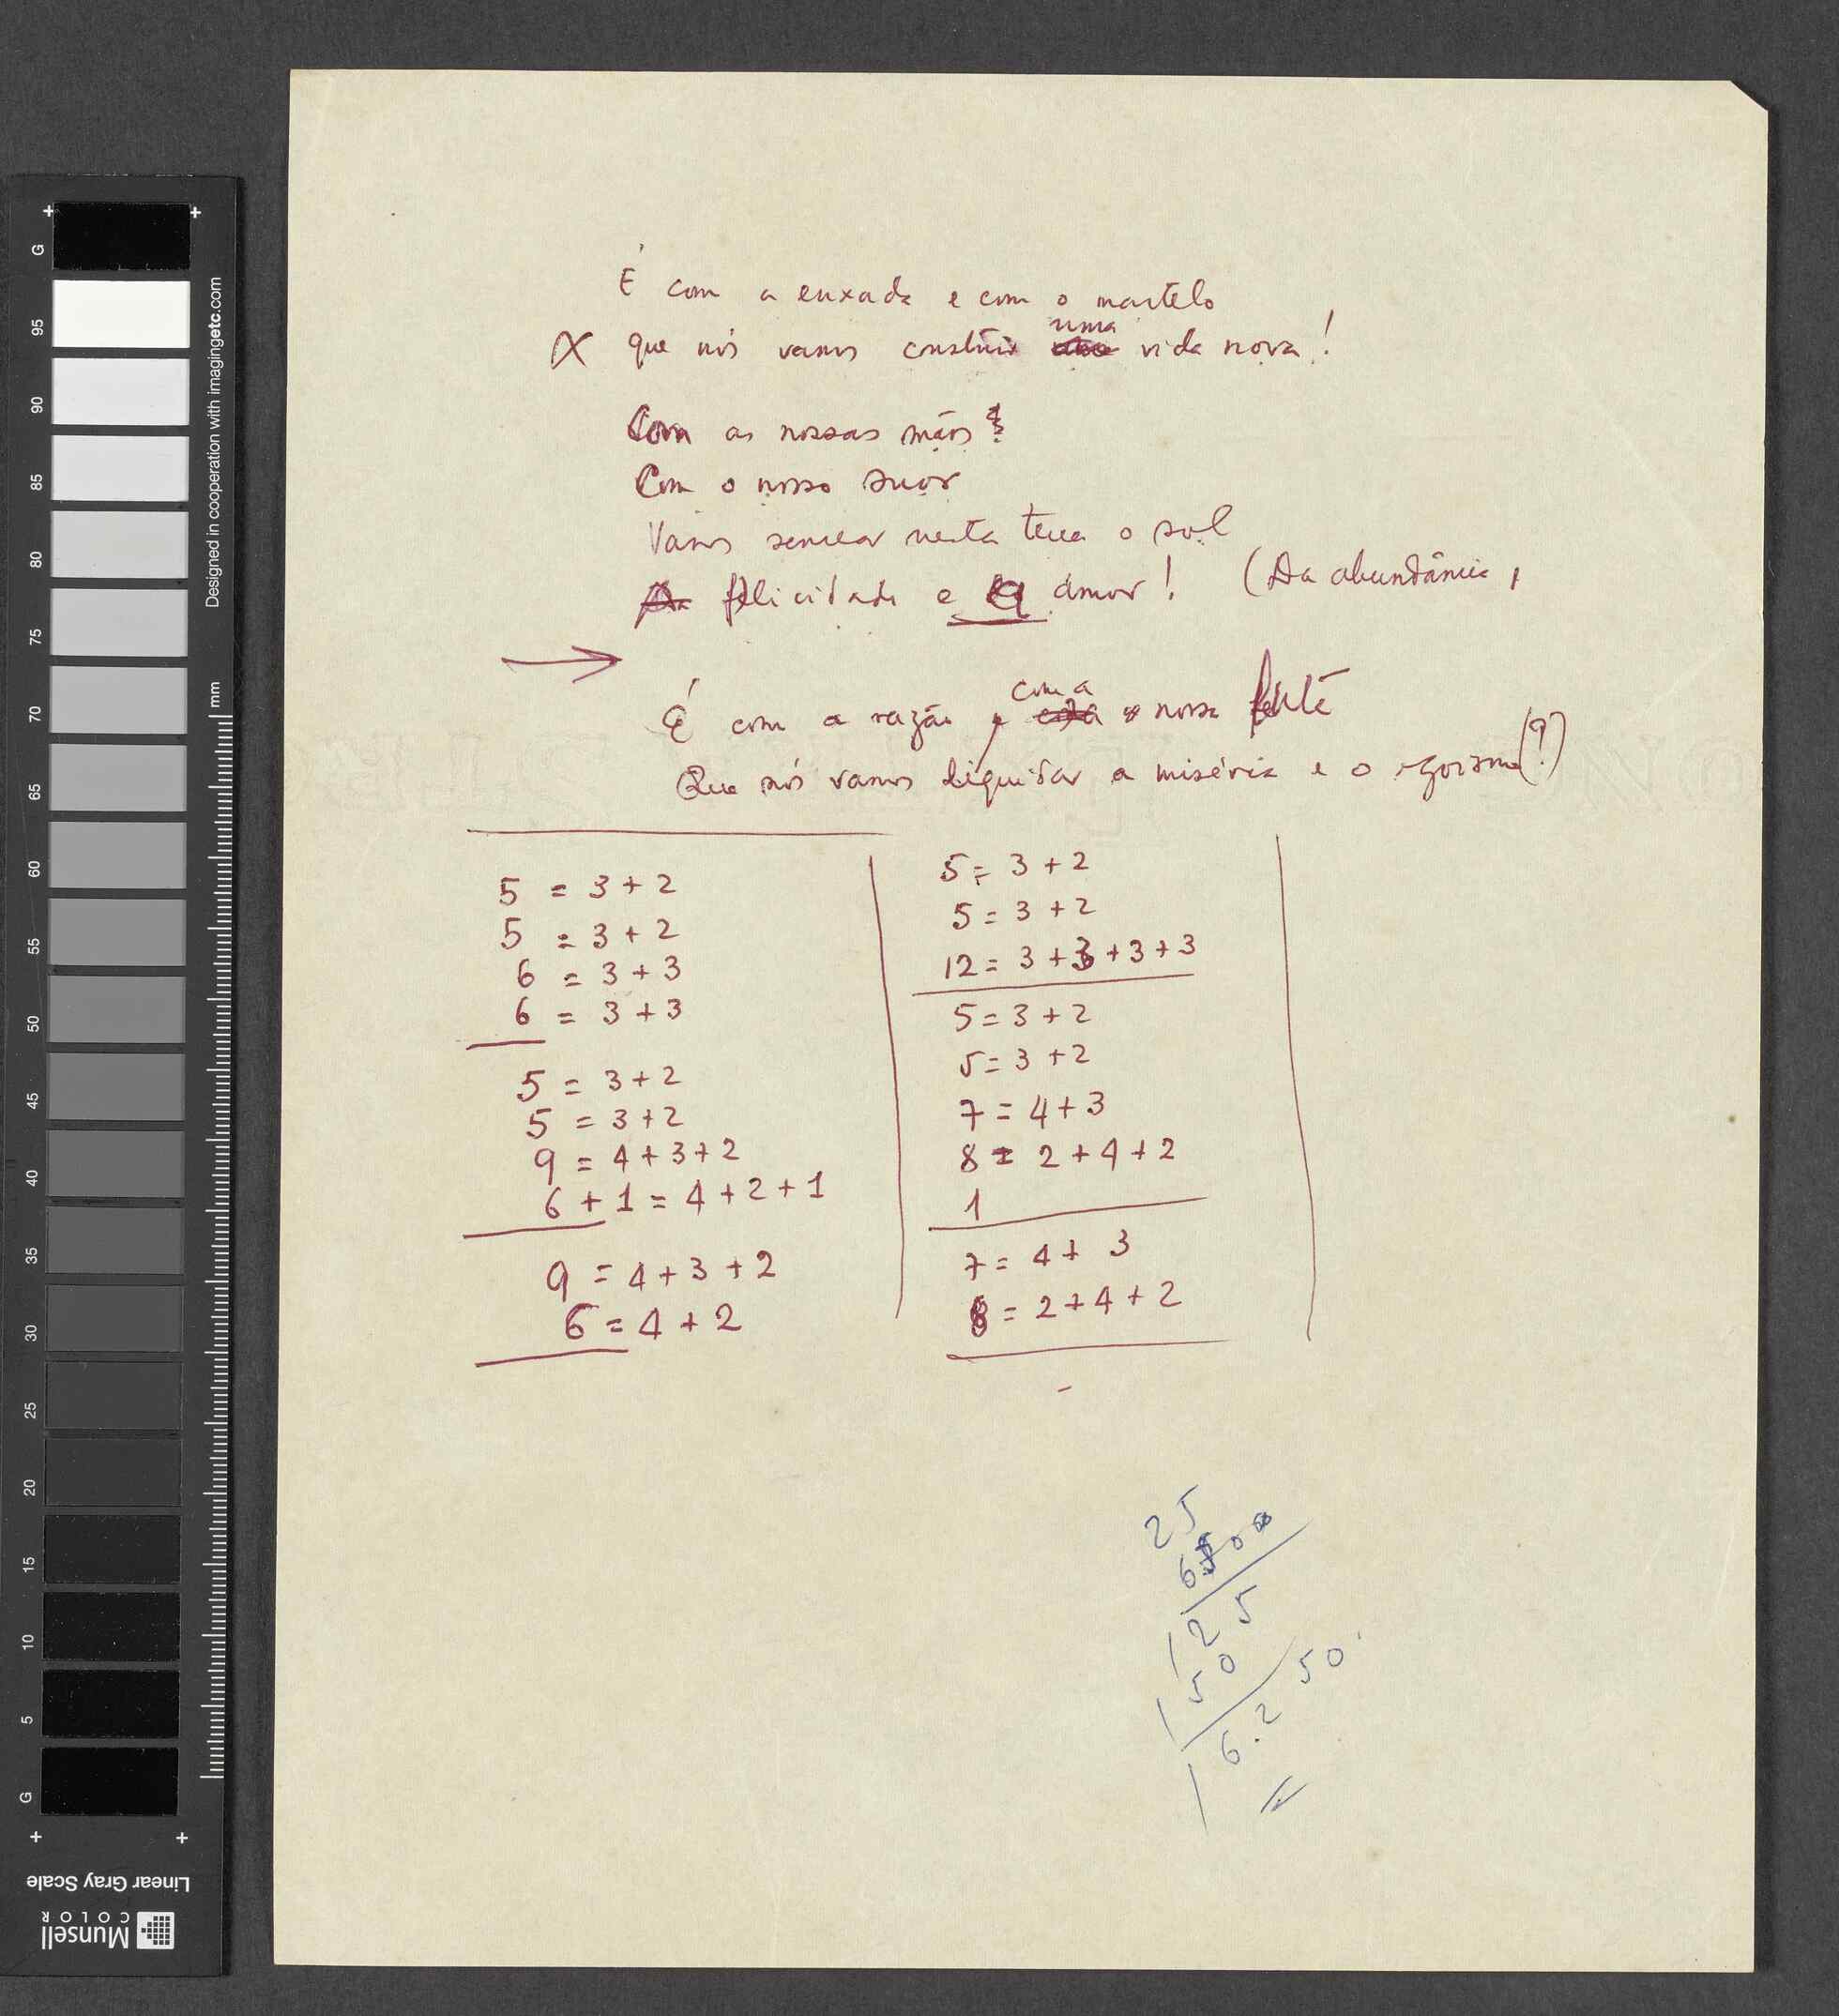 É com a enxada e com o martelo
X que nós vamos construir uma vida nova!
Com as nossas mãos
Com o nosso suor
Vamos semear nesta terra o sol
felicidade e amor! (Da abundância,
É com a razão e com a nossa
Que nós vamos liquidar a miséria e o egoismo(?)
5 = 3 + 2
5 = 3 + 2
6 = 3 + 3
6 = 3 + 3
5 = 3 + 2
5 = 3 + 2
9 = 4 + 3 + 2
6 + 1 = 4 + 2 + 1
9 = 4 + 3 + 2
6 = 4 + 2
5 = 3 + 2
5 = 3 + 2
12 = 3 + 3 + 3 + 3
5 = 3 + 2
5 = 3 + 2
7 = 4 + 3
8 = 2 + 4 + 2
1
7 = 4 + 3
8 = 2 + 4 + 2
25
125
150
16.250
G
95
90
85
80
75
70
65
60
55
50
45
40
35
30
25
20
15
10
5
G
mm
Designed in cooperation with imagingetc.com
Linear Gray Scale
Munsell
COLOR